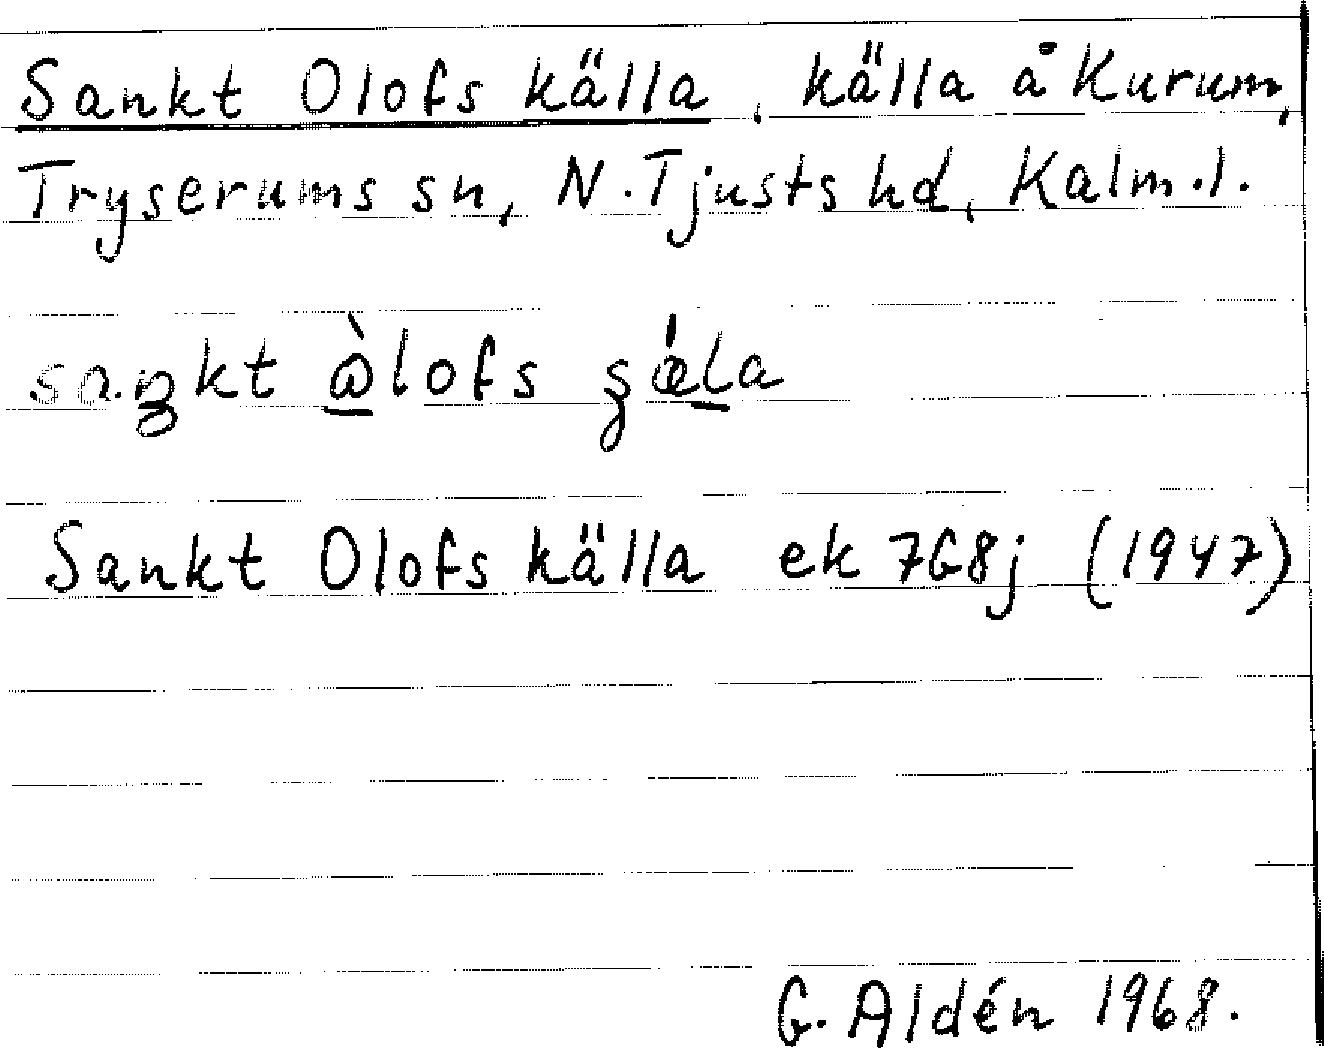 Sankt Olofs källa, källa å Kurum,
Tryserums sn, N. Tjusts hd, Kalm. l.
saŋkt òlofs ʂǽla
Sankt Olofs källa ek 7G8j (1947)
G. Aldén 1968.